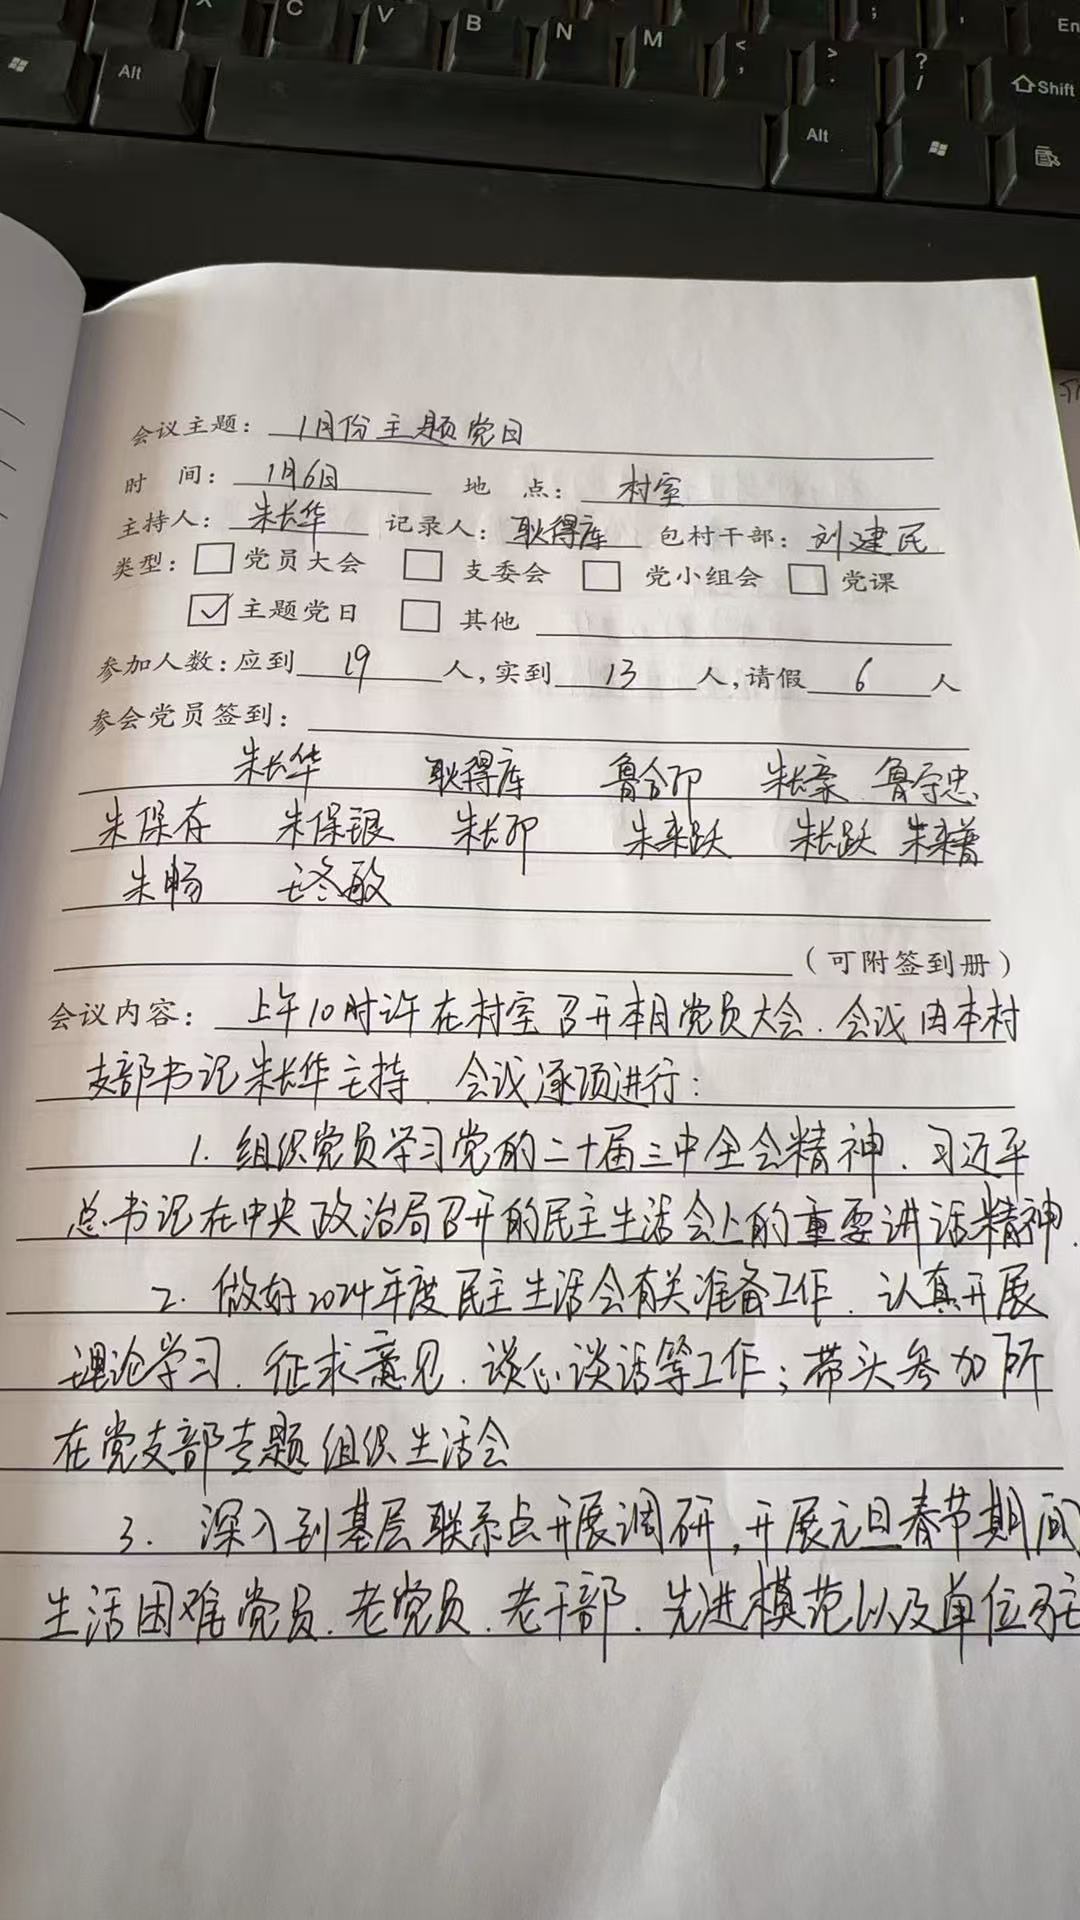 X C V B N M < , > . ? / ; ' En
Alt Alt Shift
会议主题：1月份主题党日
时 间：1月6日 地 点：村室
主持人：朱长华 记录人：耿得库 包村干部：刘建民
类型：□党员大会 □支委会 □党小组会 □党课
☑主题党日 □其他
参加人数：应到19人，实到13人，请假6人
参会党员签到：
朱长华 耿得库 鲁合印 鲁守忠
朱保存 朱保银 朱长印 朱来跃 朱长跃
朱畅
（可附签到册）
会议内容：上午10时许在村室召开本月党员大会．会议由本村
支部书记朱长华主持．会议逐项进行：
1. 组织党员学习党的二十届三中全会精神．习近平
总书记在中央政治局召开的民主生活会上的重要讲话精神．
2. 做好2024年度民主生活会有关准备工作．认真开展
理论学习．征求意见．谈心谈话等工作；带头参加所
在党支部专题组织生活会
3. 深入到基层联系点开展调研，开展元旦春节期间
生活困难党员．老党员．老干部．先进模范以及单位